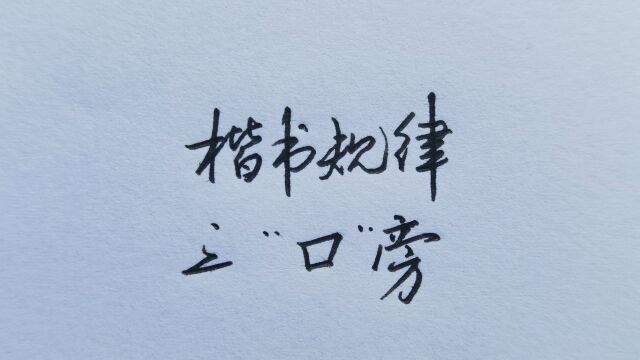 楷书规律
之"口"旁